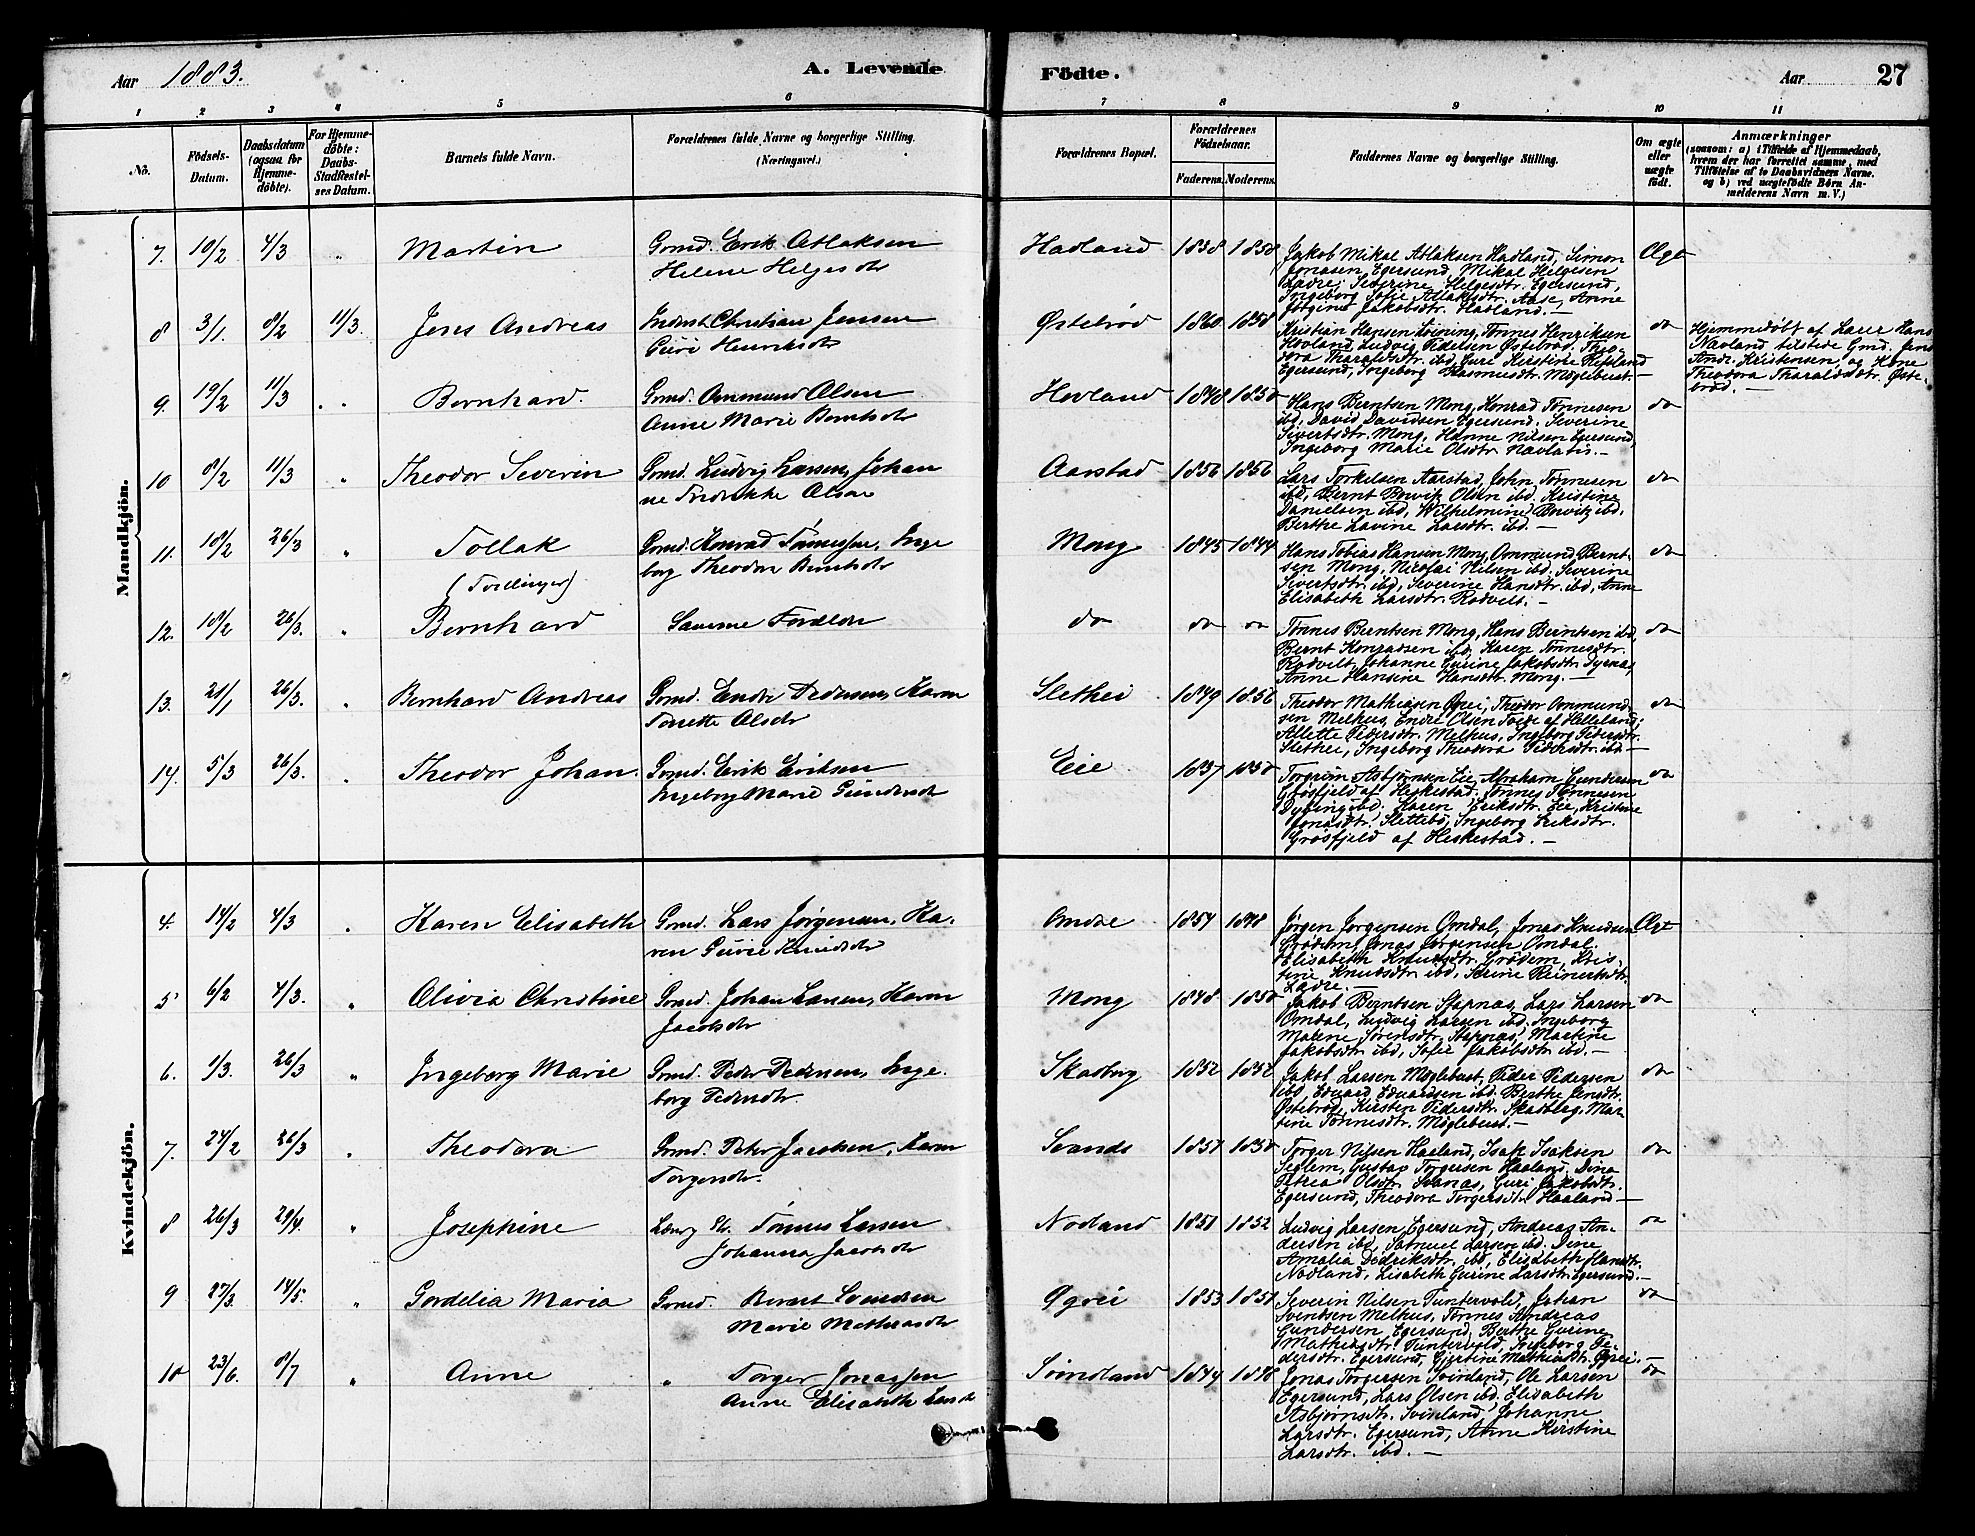 Aar 1883. A. Levende Födte. Aar 27
1 2 3 4 5 6 7 8 9 10 11
No.
Födsels-Datum.
Daabsdatum (ogsaa for Hjemme-döbte).
For Hjemme-döbte: Daabs-Stadfæstel-ses Datum.
Barnets fulde Navn.
Forældrenes fulde Navne og borgerlige Stilling. (Næringsvei.)
Forældrenes Bopæl.
Forældrenes Födselsaar.
Faderens. Moderens.
Faddernes Navne og borgerlige Stilling.
Om ægte eller uægte födt.
Anmærkninger
(saasom: a) i Tilfælde af Hjemmedaab, hvem der har forrettet samme, med Tilföielse af to Daabsvidners Navne. og b) ved uægtefödte Börn An-melderens Navn m. V.)
Mandkjön.
7. 10/2 4/3 " Martin
Gmd. Erik Atlaksen
Helene Helgesdtr
Hadland 1838 1850
Jakob Mikal Atlaksen Hadland, Simon
Jonasen, Egersund, Mikal Helgesen
Ladre, Severine Helgesdtr. Egersund,
Ingeborg Sofie Atlaksdtr. Aase, Anne
Jörgine Jakobsdtr. Hadland. —
Ægt
8 3/1 8/2 11/3. Jens Andreas
Inderst Christian Jensen
Guri Henriksdtr
Østebröd 1860 1858
Kristian Hansen Loining, Tönnes Henriksen
Hovland, Ludvig Pedersen Østebröd, Theo-
dora Tharaldsdtr. ibd, Gure Kirstine Refsland
Egersund, Ingeborg Rasmusdtr. Möglebust. —
do
Hjemmedöbt af Lærer Hans
Navland tilstede Gmd. Jens
Andr. Kristensen, og Kone
Theodora Tharaldsdtr. Øste-
bröd. —
9. 19/2 11/3 " Bernhard.
Gmd. Ommund Olsen
Anne Marie Berntsdtr
Hovland 1848 1850
Hans Berntsen Mong, Konrad Tönnesen
ibd, David Davidsen Egersund. Severine
Sivertsdtr. Mong, Hanne Nilsen Egersund
Ingeborg Marie Olsdtr. Navlatis. —
do
10 8/2 11/3 " Theodor Severin
Gmd. Ludvig Larsen, Johan
ne Fredrikke Olsen
Aarstad 1856 1856
Lars Torkelsen Aarstad, John Tönnesen
ibd, Bernt Bowitz Olsen ibd, Kristine
Danielsen ibd, Wilhelmine Bowitz ibd.
Berthe Lavine Larsdtr. ibd. —
do
11. 18/2 26/3 " Tollak
(Tvillinger)
Gmd. Konrad Tönnessen, Inge
borg Theodora Berntsdtr
Mong 1845 1844
Hans Tobias Hansen Mong, Ommund Bernt-
sen Mong, Nicolai Nilsen ibd. Severine
Sivertsdtr. ibd, Severine Hansdtr. ibd, Anne
Elisabeth Larsdtr. Rodvelt. —
do
12. 18/2 26/3. " Bernhard
Samme Forældre
do do do
Tönnes Berntsen Mong, Hans Berntsen ibd,
Bernt Konradsen ibd, Karen Tönnesdtr.
Rodvelt, Johanne Gurine Jakobsdtr. Dyrnæs,
Anne Hansine Hansdtr. Mong. —
do
13. 21/1 26/3. " Bernhard Andreas
Gmd. Endre Pedersen, Karen
Tonette Olsdtr
Slethei 1849 1856
Theodor Mathiasen Øgrei, Theodor Ommund-
sen Melhus, Endre Olsen Tveide af Helleland;
Allette Pedersdtr. Melhus, Ingeborg Pedersdtr.
Slethei, Ingeborg Theodora Pedersdtr. ibd. —
do
14. 5/3 26/3. " Theodor Johan.
Gmd. Erik Eriksen
Ingeborg Marie Gundersdtr
Eie 1837 1850
Torgrim Asbjörnsen Eie, Abraham Gundersen
Grösfjeld af Heskestad. Tönnes Tönnesen
Dybing ibd. Karen Eriksdtr. Eie, Kristine
Jonasdtr. Slettebö, Ingeborg Eriksdtr.
Grösfjeld af Heskestad. —
do
Kvindekjön.
4. 14/2 4/3 " Karen Elisabeth
Gmd. Lars Jörgensen, Ka-
ren Gurie Knudsdtr
Omdal 1854 1848
Jörgen Jörgensen Omdal, Jonas Knudsen
Grödem, Jonas Jörgensen Omdal.
Elisabeth Knudsdtr. Grödem, Kris-
tine Knudsdtr. ibd, Serine Reinertsdtr.
Ladre. —
Ægt
5 6/2 4/3. " Olivia Christine
Gmd. Johan Larsen, Karen
Jacobsdtr
Mong 1848 1850
Jakob Berntsen Stapnæs, Lars Larsen
Omdal, Ludvig Larsen ibd. Ingeborg
Malene Sörensdtr. Stapnæs, Martine
Jakobsdtr. ibd, Sofie Jakobsdtr. ibd. —
do
6. 1/3. 26/3 " Ingeborg Marie
Gmd. Peder Pedersen, Inge.
borg Pedersdtr
Skadberg 1852 1852
Jakob Larsen Möglebust, Peder Pedersen
ibd, Eduard Eduardsen ibd. Berthe Jensdtr.
Østebröd, Kirsten Pedersdtr. Skadberg, Mar-
tine Tönnesdtr. Möglebust. —
do
7. 24/2 26/3 " Theodora
Gmd. Peter Jacobsen, Karen
Torgersdtr.
Svanæs 1857 1850
Torger Nilsen Haaland, Isak Isaksen
Seglem, Gustav Torgersen Haaland. Dina
Petrea Olsdtr. Svanæs, Guri Jakobsdtr.
Egersund, Theodora Torgersdtr. Haaland —
do
8 26/3 29/4. " Josephine
Tönnes Larsen
Johanna Jacobsdtr
Nodland 1851 1852
Ludvig Larsen Egersund, Andreas An-
dersen ibd, Samuel Larsen ibd. Dine
Amalia Didriksdtr. ibd, Elisabeth Hansdtr.
Nodland, Lisabeth Gurine Larsdtr. Egersund. —
do
9 27/3. 14/5. " Gordelia Maria
Gmd. Bernt Svendsen
Marie Mathiasdtr
Øgrei 1853 1851
Severin Nilsen Tuntervold, Johan
Svendsen Melhus, Tönnes Andreas
Gundersen Egersund, Berthe Gurine
Mathiasdtr. Tuntervold, Ingeborg Pe-
dersdtr. Egersund, Gjertine Mathiasdtr. Øgrei. —
do
10 23/6. 8/7 " Anne
" Torger Jonassen
Anne Elisabeth Larsdtr
Svindland 1844 1848
Jonas Torgersen Svinland, Ole Larsen
Egersund, Lars Olsen ibd. Elisabeth
Asbjörnsdtr. Svinland, Johanne
Larsdtr. Egersund, Anne Kirstine
Larsdtr. ibd. —
do